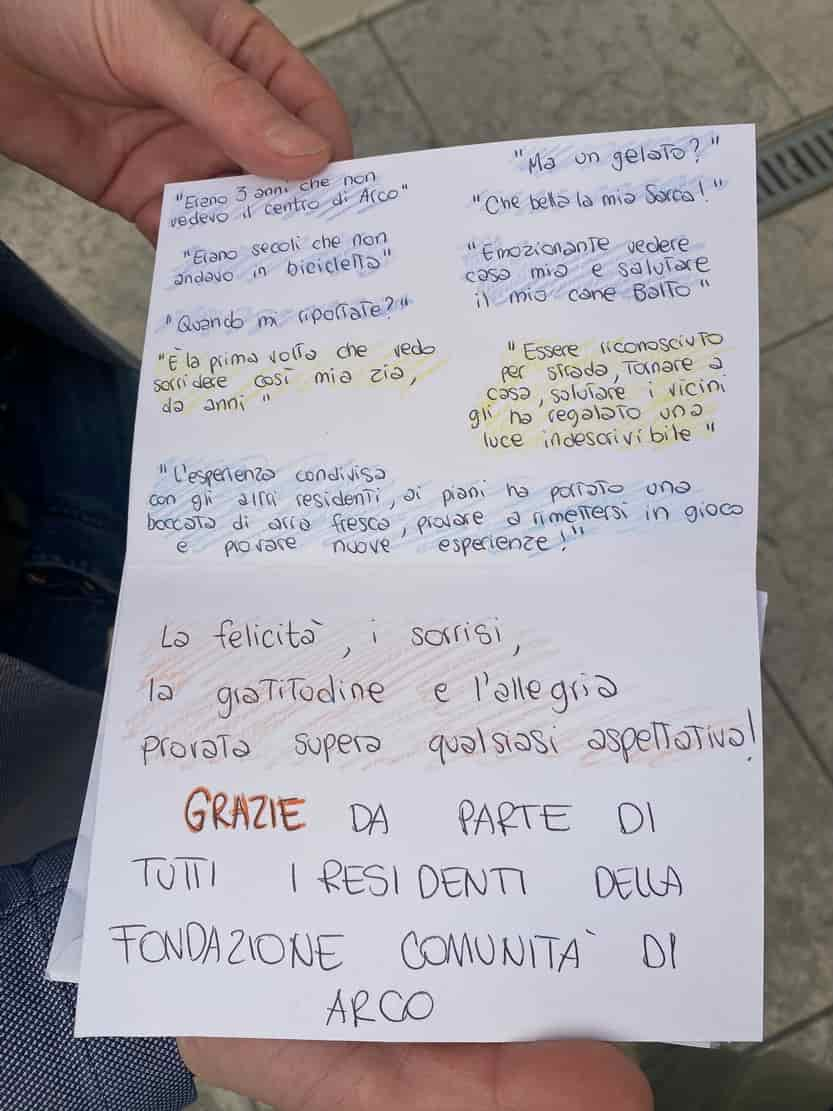 "Erano 3 anni che non
vedevo il centro di Arco"
"Erano secoli che non
andavo in bicicletta"
"Quando mi riportate?"
"È la prima volta che vedo
sorridere così mia zia,
da anni"
"Ma un gelato?"
"Che bella la mia Sarca!"
"Emozionante vedere
casa mia e salutare
il mio cane Balto"
"Essere riconosciuto
per strada, tornare a
casa, salutare i vicini
gli ha regalato una
luce indescrivibile"
"L'esperienza condivisa
con gli altri residenti, ai piani ha portato una
boccata di aria fresca, provare a rimettersi in gioco
e provare nuove esperienze!"
La felicità, i sorrisi,
la gratitudine e l'allegria
provata supera qualsiasi aspettativa!
GRAZIE DA PARTE DI
TUTTI I RESIDENTI DELLA
FONDAZIONE COMUNITÀ DI
ARCO